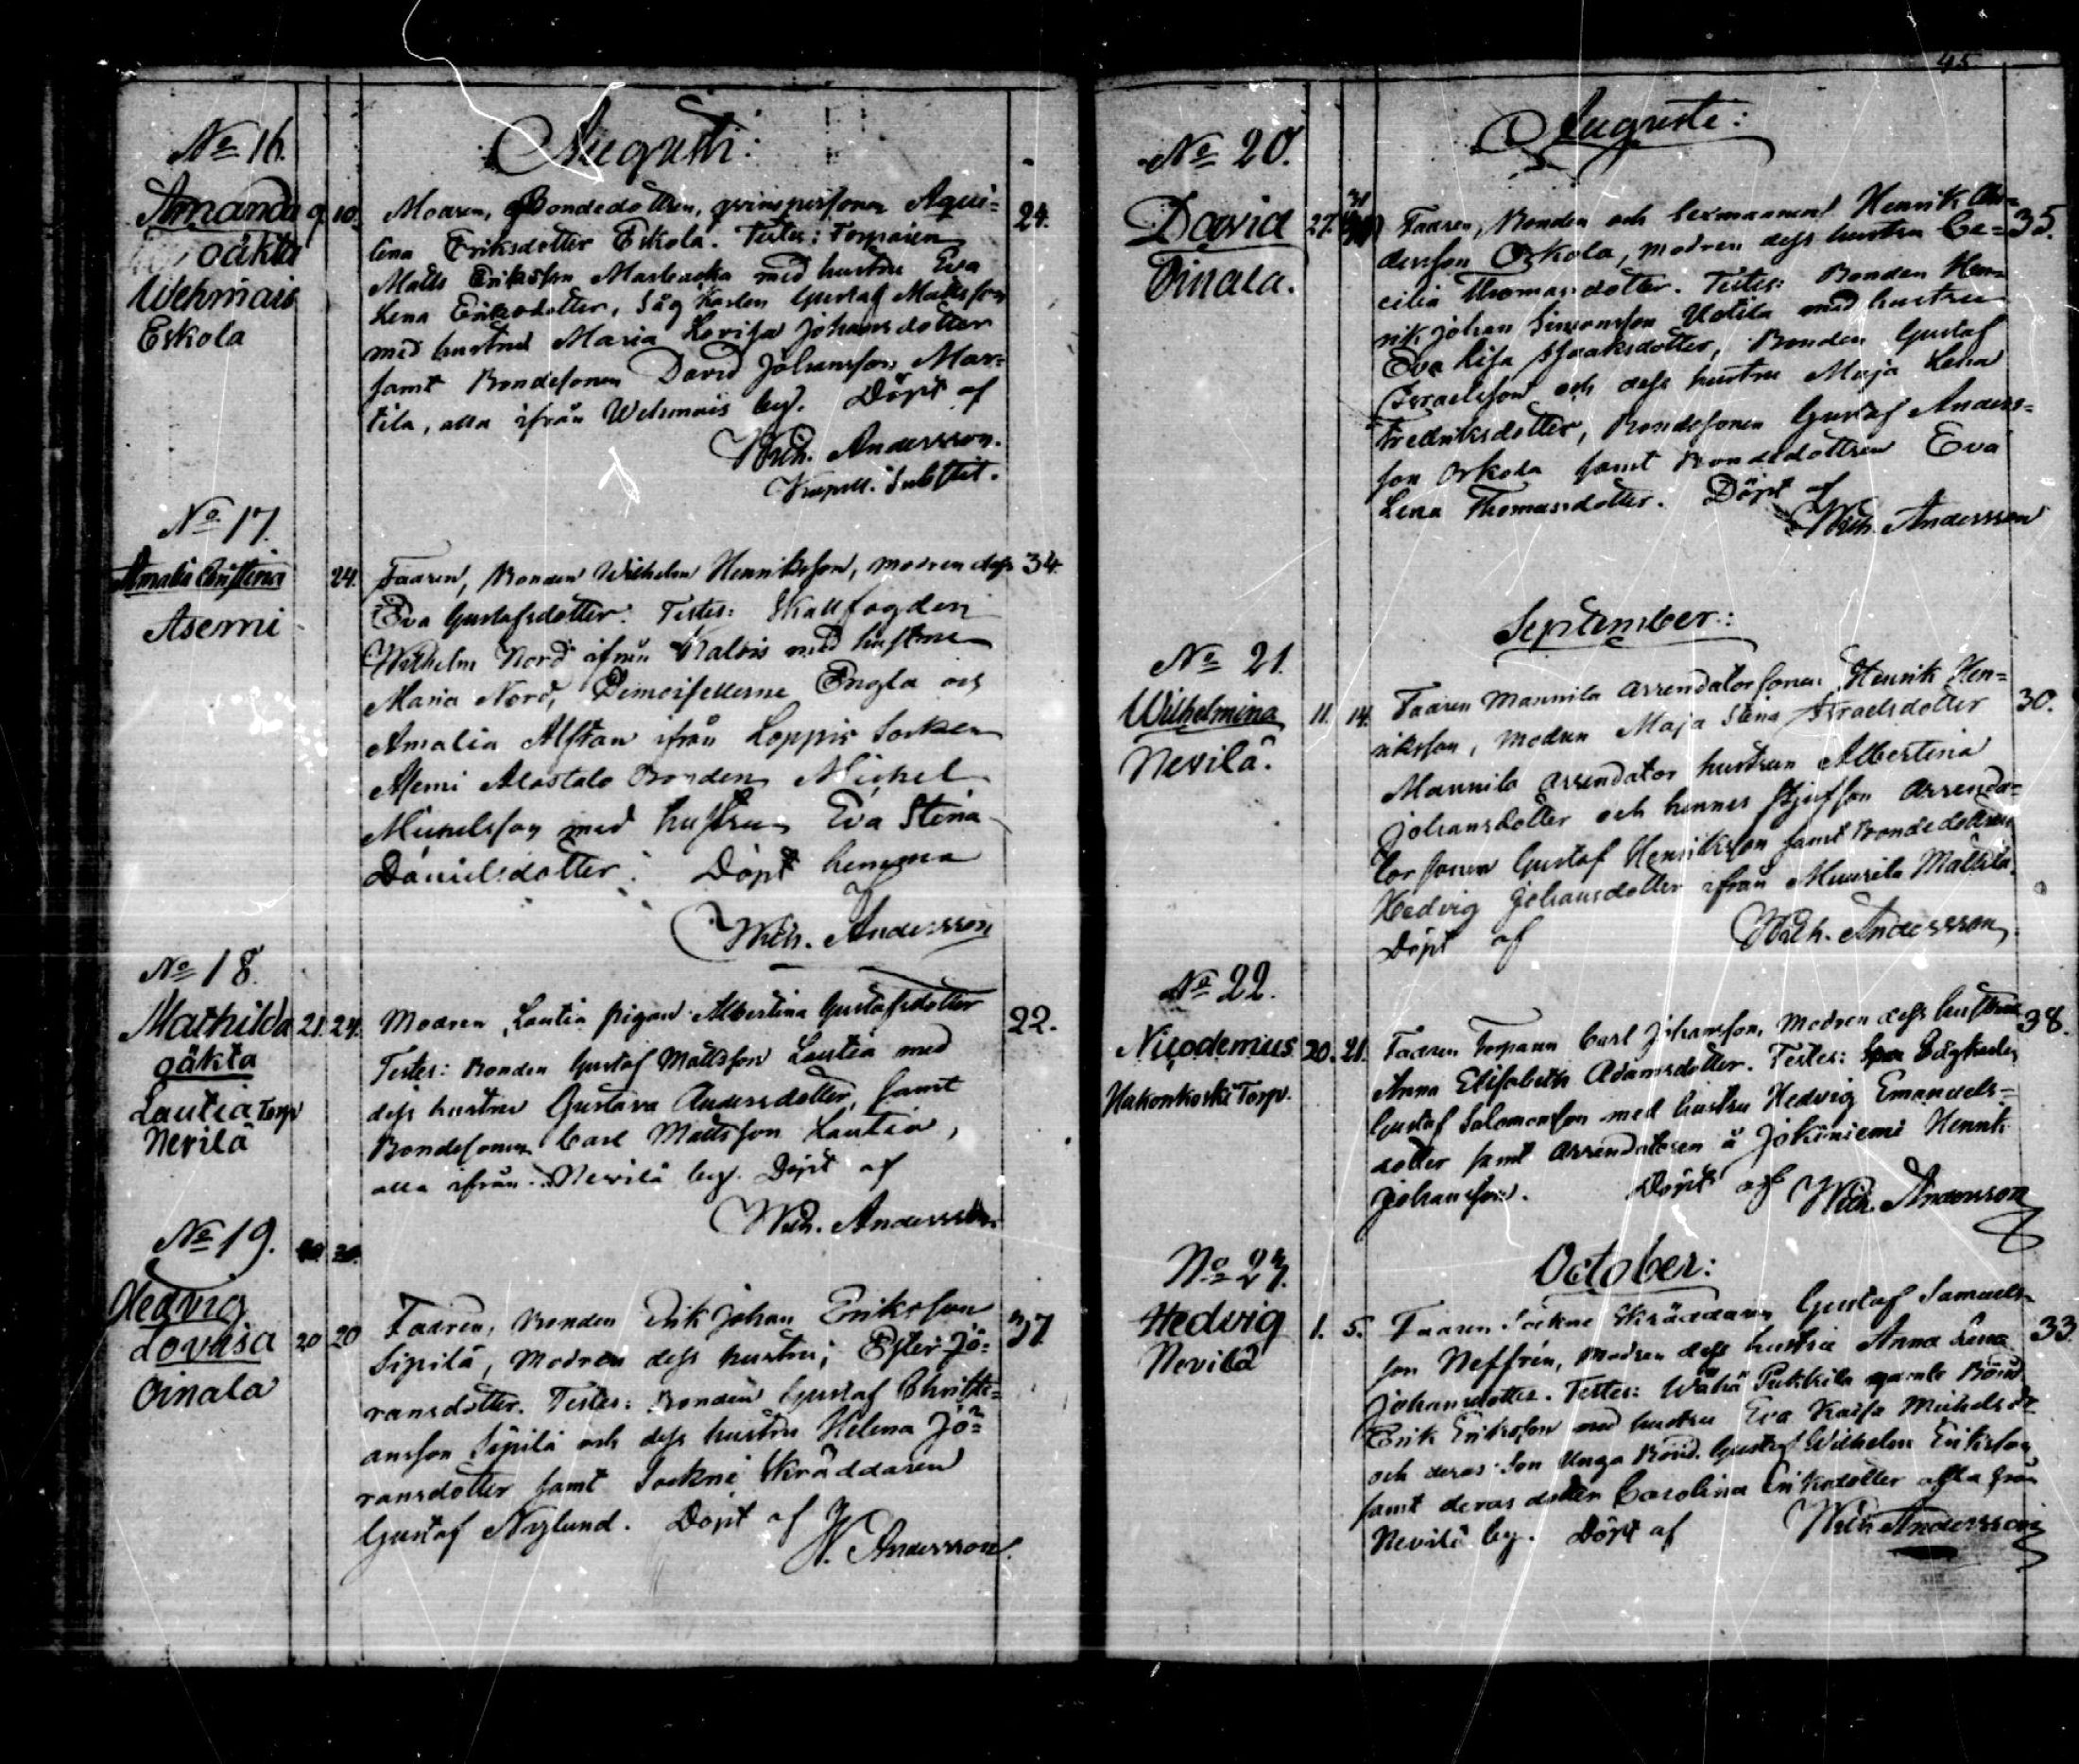 Augusti:
No 16.
Amanda 9. 10.
oäkta
Wehmais
Eskola
Modren, Bondedottren, qvinspersonen Aqui=
lena Eriksdotter Eskola. Testes: Torparen
Matts Eriksson med hustru Eva
Lena Eriksdotter, Såg Karlen Gustaf Mattsson
med hustru Maria Lovisa Johansdotter
samt Bondesonen David Johansson Mar=
tila, alla ifrån Wehmais by. Döpt af
Wilh. Andersson.
Kapell. Substit.
24.
No 17.
Amalia Christina 24.
Asemi
Fadren, Bonden Wilhelm Henriksson, modren dess 34.
Eva Gustafsdotter. Testes: Skallfogden
Wilhelm Nord ifrån Kalvis med hustru
Maria Nord, Demoisellerne Engla och
Amalia Alftan ifrån Loppis Socken
Asemi Alastalo Bonden Michel
Michelsson med hustru Eva Stina
Danielsdotter. Döpt hemma
Wilh. Andersson
No 18.
Mathilda 21. 24.
oäkta
Lautia Torp
Nevilä
Modren, Lautia pigan Albertina Gustafsdotter 22.
Testes: Bonden Gustaf Mattsson Lautia med
dess hustru Gustava Andersdotter, samt
Bondesonen Carl Mattsson Lautia,
alla ifrån Nevilä by. Döpt af
Wilh. Andersson.
No 19.
Hedvig
Lovisa 20 20
Oinala
Fadren, Bonden Erik Johan Eriksson 37.
Sipilä, Modren dess hustru, Ester Jö=
ransdotter. Testes: Bonden Gustaf Christi=
ansson Sipilä och dess hustru Helena Jö=
ransdotter samt Sockne Skräddaren
Gustaf Nylund. Döpt af
W. Andersson.
45
Augusti:
No 20.
David 27. 31
Oinala.
Fadren, Bonden och Sexmannen Henrik An= 35.
dersson Orkola, modren dess hustru Ce=
cilia Thomasdotter. Testes: Bonden Hen=
rik Johan Simonsson Uotila med hustru
Eva Lisa Isaaksdotter, Bonden Gustaf
Israelsson och dess hustru Maja Lena
Fredriksdotter, Bondesonen Gustaf Anders=
son Orkola samt Bondedottren Eva
Lena Thomasdotter. Döpt af
Wilh. Andersson
September:
No 21.
Wilhelmina 11. 14.
Nevilä.
Fadren Mannila arrendatorsonen Henrik Hen= 30.
riksson, modren Maja Stina Israelsdotter
Mannila arrendator hustrun Albertina
Johansdotter och hennes styfson arrenda=
tor sonen Gustaf Henriksson samt Bondedottren
Hedvig Johansdotter ifrån
Döpt af Wilh. Andersson
No 22.
Nicodemus 20. 21.
Hakonkoski Torp.
Fadren Torparen Carl Johansson, Modren dess hustru 38.
Anna Elisabeth Adamsdotter. Testes: Sågkarlen
Gustaf Salomonsson med hustru Hedvig Emanuels=
dotter samt arrendatoren å Jokiniemi Henrik
Johansson. Döpt af Wilh. Andersson
October:
No 23.
Hedvig 1. 5.
Nevilä
Fadren Sockne Skräddaren Gustaf Samuels= 33.
son Neffrén, modren dess hustru Anna Lena
Johansdotter. Testes: Wähä Pukkila gamle Bond.
Erik Eriksson med hustru Eva Kaisa Michelsdr
och deras Son Unga Bond. Gustaf Wilhelm Eriksson
samt deras dotter Carolina Eriksdotter alla från
Nevilä by. Döpt af Wilh Andersson